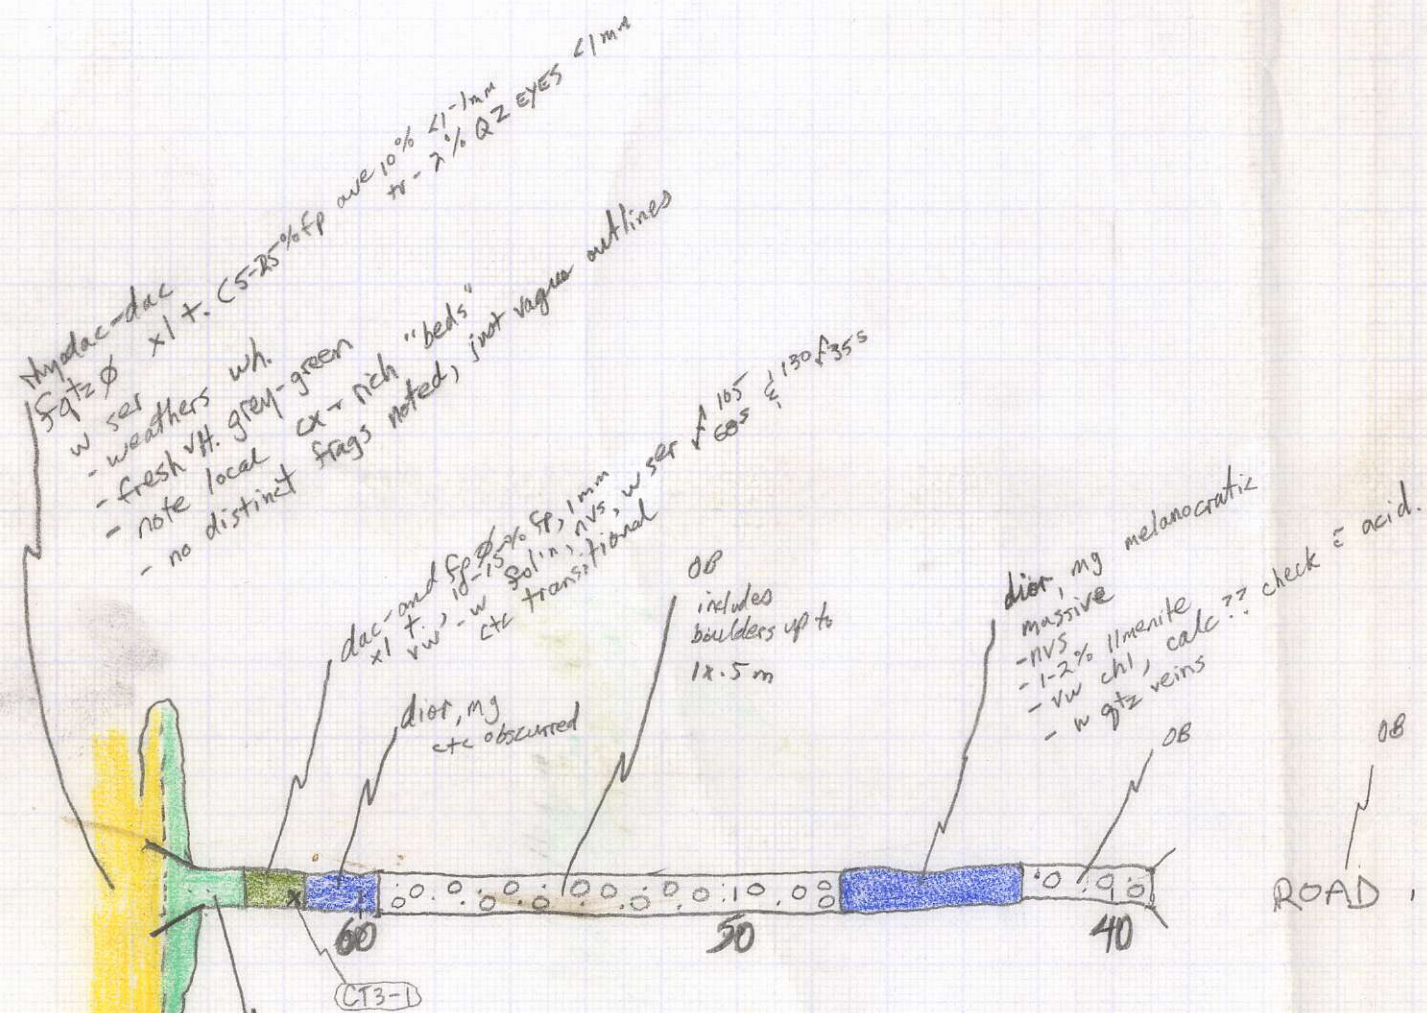 rhyodac-dac
fqtz Ø xl t. (5-25% fp ave 10% <1-1mm
tr-2% QZ EYES <1mm
w ser
- weathers wh.
- fresh lt. grey-green
- note local cx-rich "beds"
- no distinct frags noted, just vague outlines
dac-and fp Ø
xl t., 10-15% fp, 1mm
vw-w fol'n, nvs, w ser
105
68s
& 130 f 35s
ctc transitional
dior, mg
ctc obscurred
OB
includes
boulders up to
1x.5m
dior, mg melanocratic
massive
- nvs
- 1-2% Ilmenite
- vw chl, calc?? check c̄ acid.
- w qtz veins
OB
OB
ROAD
60
50
40
CT3-1